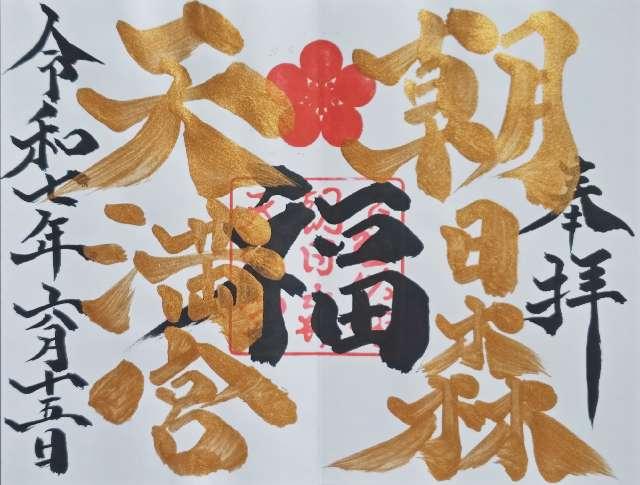 奉拝
朝日森
天満宮
福
令和七年六月十五日